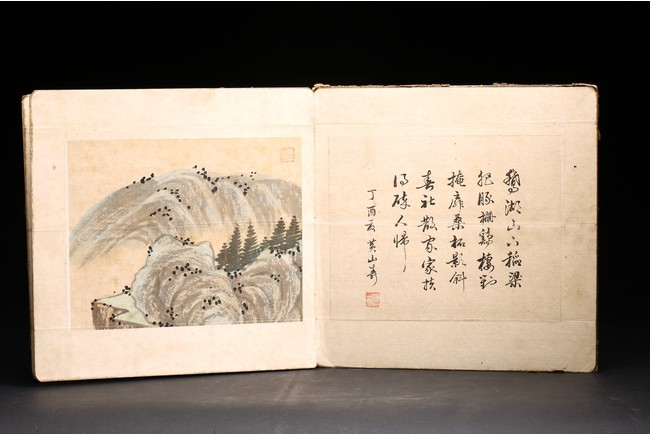 鵞湖山下稻梁
肥豚柵鷄棲對
掩扉桑柘影斜
春社散家家扶
得醉人歸
丁酉 黃山壽